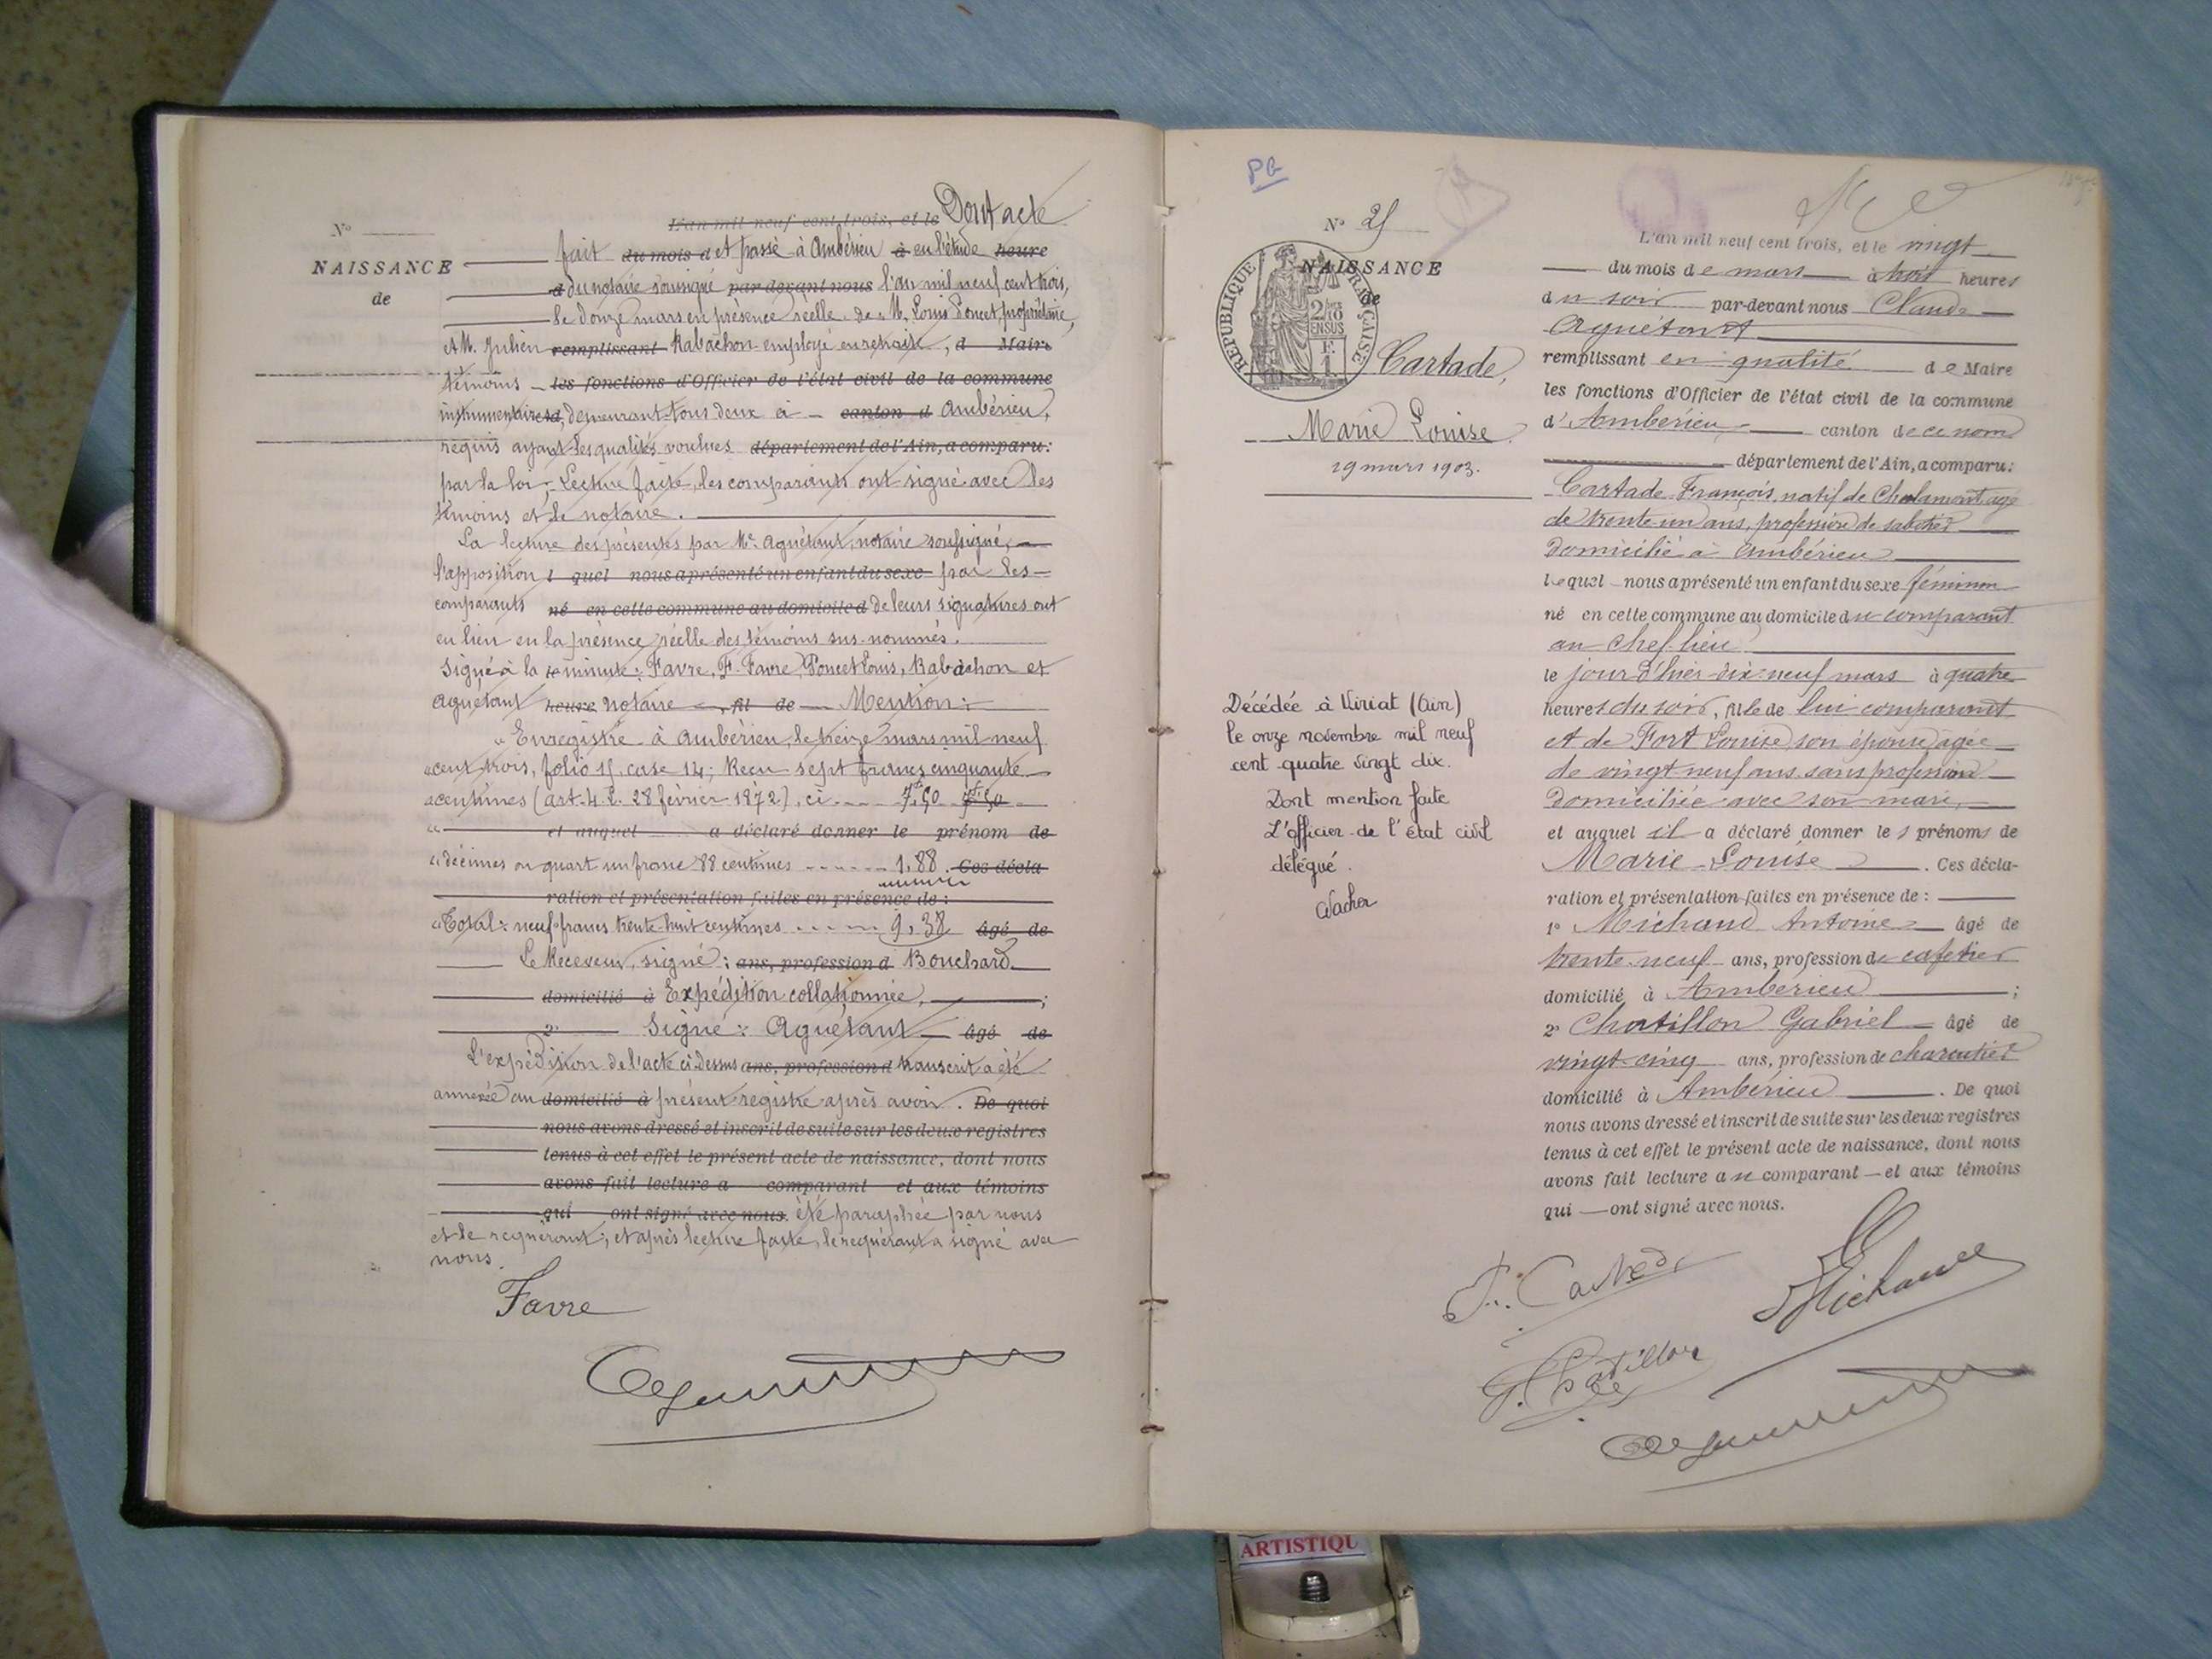 N°
NAISSANCE
de
L'an mil neuf cent trois, et le Dont acte
fait du mois d et passé à Ambérieu à en l'étude heure
d du notaire soussigné par devant nous l'an mil neuf cent trois,
le douze mars en présence réelle de M. Louis Poncet, propriétaire,
et M. Julien remplissant Rabachon employé en retraite, d Maire
témoins les fonctions d'Officier de l'état civil de la commune
instrumentaires d, demeurant tous deux à canton d Ambérieu,
requis ayant les qualités voulues département de l'Ain, a comparu:
par la loi; Lecture faite, les comparants ont signé avec les
témoins et le notaire.
La lecture des présentes par Me Aguétant, notaire soussigné,
l'apposition l quel nous a présenté un enfant du sexe par les
comparants né en cette commune au domicile d de leurs signatures ont
eu lieu en la présence réelle des témoins sus-nommés.
Signé à la le minute: Favre, F. Favre, Poncet Louis, Rabachon et
Aguétant heure notaire, fil de Mention:
"Enregistré à Ambérieu, le treize mars mil neuf
"cent trois, folio 15, case 14; Reçu sept francs cinquante
"centimes (art. 4. L. 28 février 1872), ci 7,50 7,50
" et auquel a déclaré donner le prénom de
"décimes ou quart un franc 88 centimes 1,88. Ces décla-
ration et présentation faites en présence de:
"Total: neuf francs trente-huit centimes 9,38 âgé de
Le Receveur, signé: ans, profession d Bouchard
domicilié à Expédition collationnée, ;
2° Signé: Aguétant âgé de
L'expédition de l'acte ci-dessus ans, profession d transcrit a été
annexée au domicilié à présent registre après avoir. De quoi
nous avons dressé et inscrit de suite sur les deux registres
tenus à cet effet le présent acte de naissance, dont nous
avons fait lecture a comparant et aux témoins
qui ont signé avec nous. été paraphée par nous
et le requérant; et après lecture faite, le requérant a signé avec
nous.
Favre
PB
N° 25
NAISSANCE
de
RÉPUBLIQUE FRANÇAISE
2/10
EN SUS
Cartade,
Marie Louise
19 mars 1903.
Décédée à Viriat (Ain)
le onze novembre mil neuf
cent quatre vingt dix.
Dont mention faite
L'officier de l'état civil
délégué.
L'an mil neuf cent trois, et le vingt
du mois de mars à trois heures
du soir par-devant nous Claude
Aguétant
remplissant en qualité de Maire
les fonctions d'Officier de l'état civil de la commune
d'Ambérieu, canton de ce nom
département de l'Ain, a comparu:
Cartade François natif de Chalamont agé
de trente un ans, profession de sabotier
domicilié à Ambérieu
lequel nous a présenté un enfant du sexe féminin
né en cette commune au domicile du comparant
au chef-lieu
le jour d'hier dix-neuf mars à quatre
heures du soir, fille de lui comparant
et de Fort Louise son épouse agée
de vingt neuf ans sans profession
domiciliée avec son mari,
et auquel il a déclaré donner les prénoms de
Marie-Louise. Ces décla-
ration et présentation faites en présence de:
1° Michaud Antoine âgé de
trente-neuf ans, profession de cafetier
domicilié à Ambérieu ;
2° Chatillon Gabriel âgé de
vingt-cinq ans, profession de charcutier
domicilié à Ambérieu. De quoi
nous avons dressé et inscrit de suite sur les deux registres
tenus à cet effet le présent acte de naissance, dont nous
avons fait lecture au comparant et aux témoins
qui ont signé avec nous.
F. Cartade
Michaud
G. Chatillon
ARTISTIQU